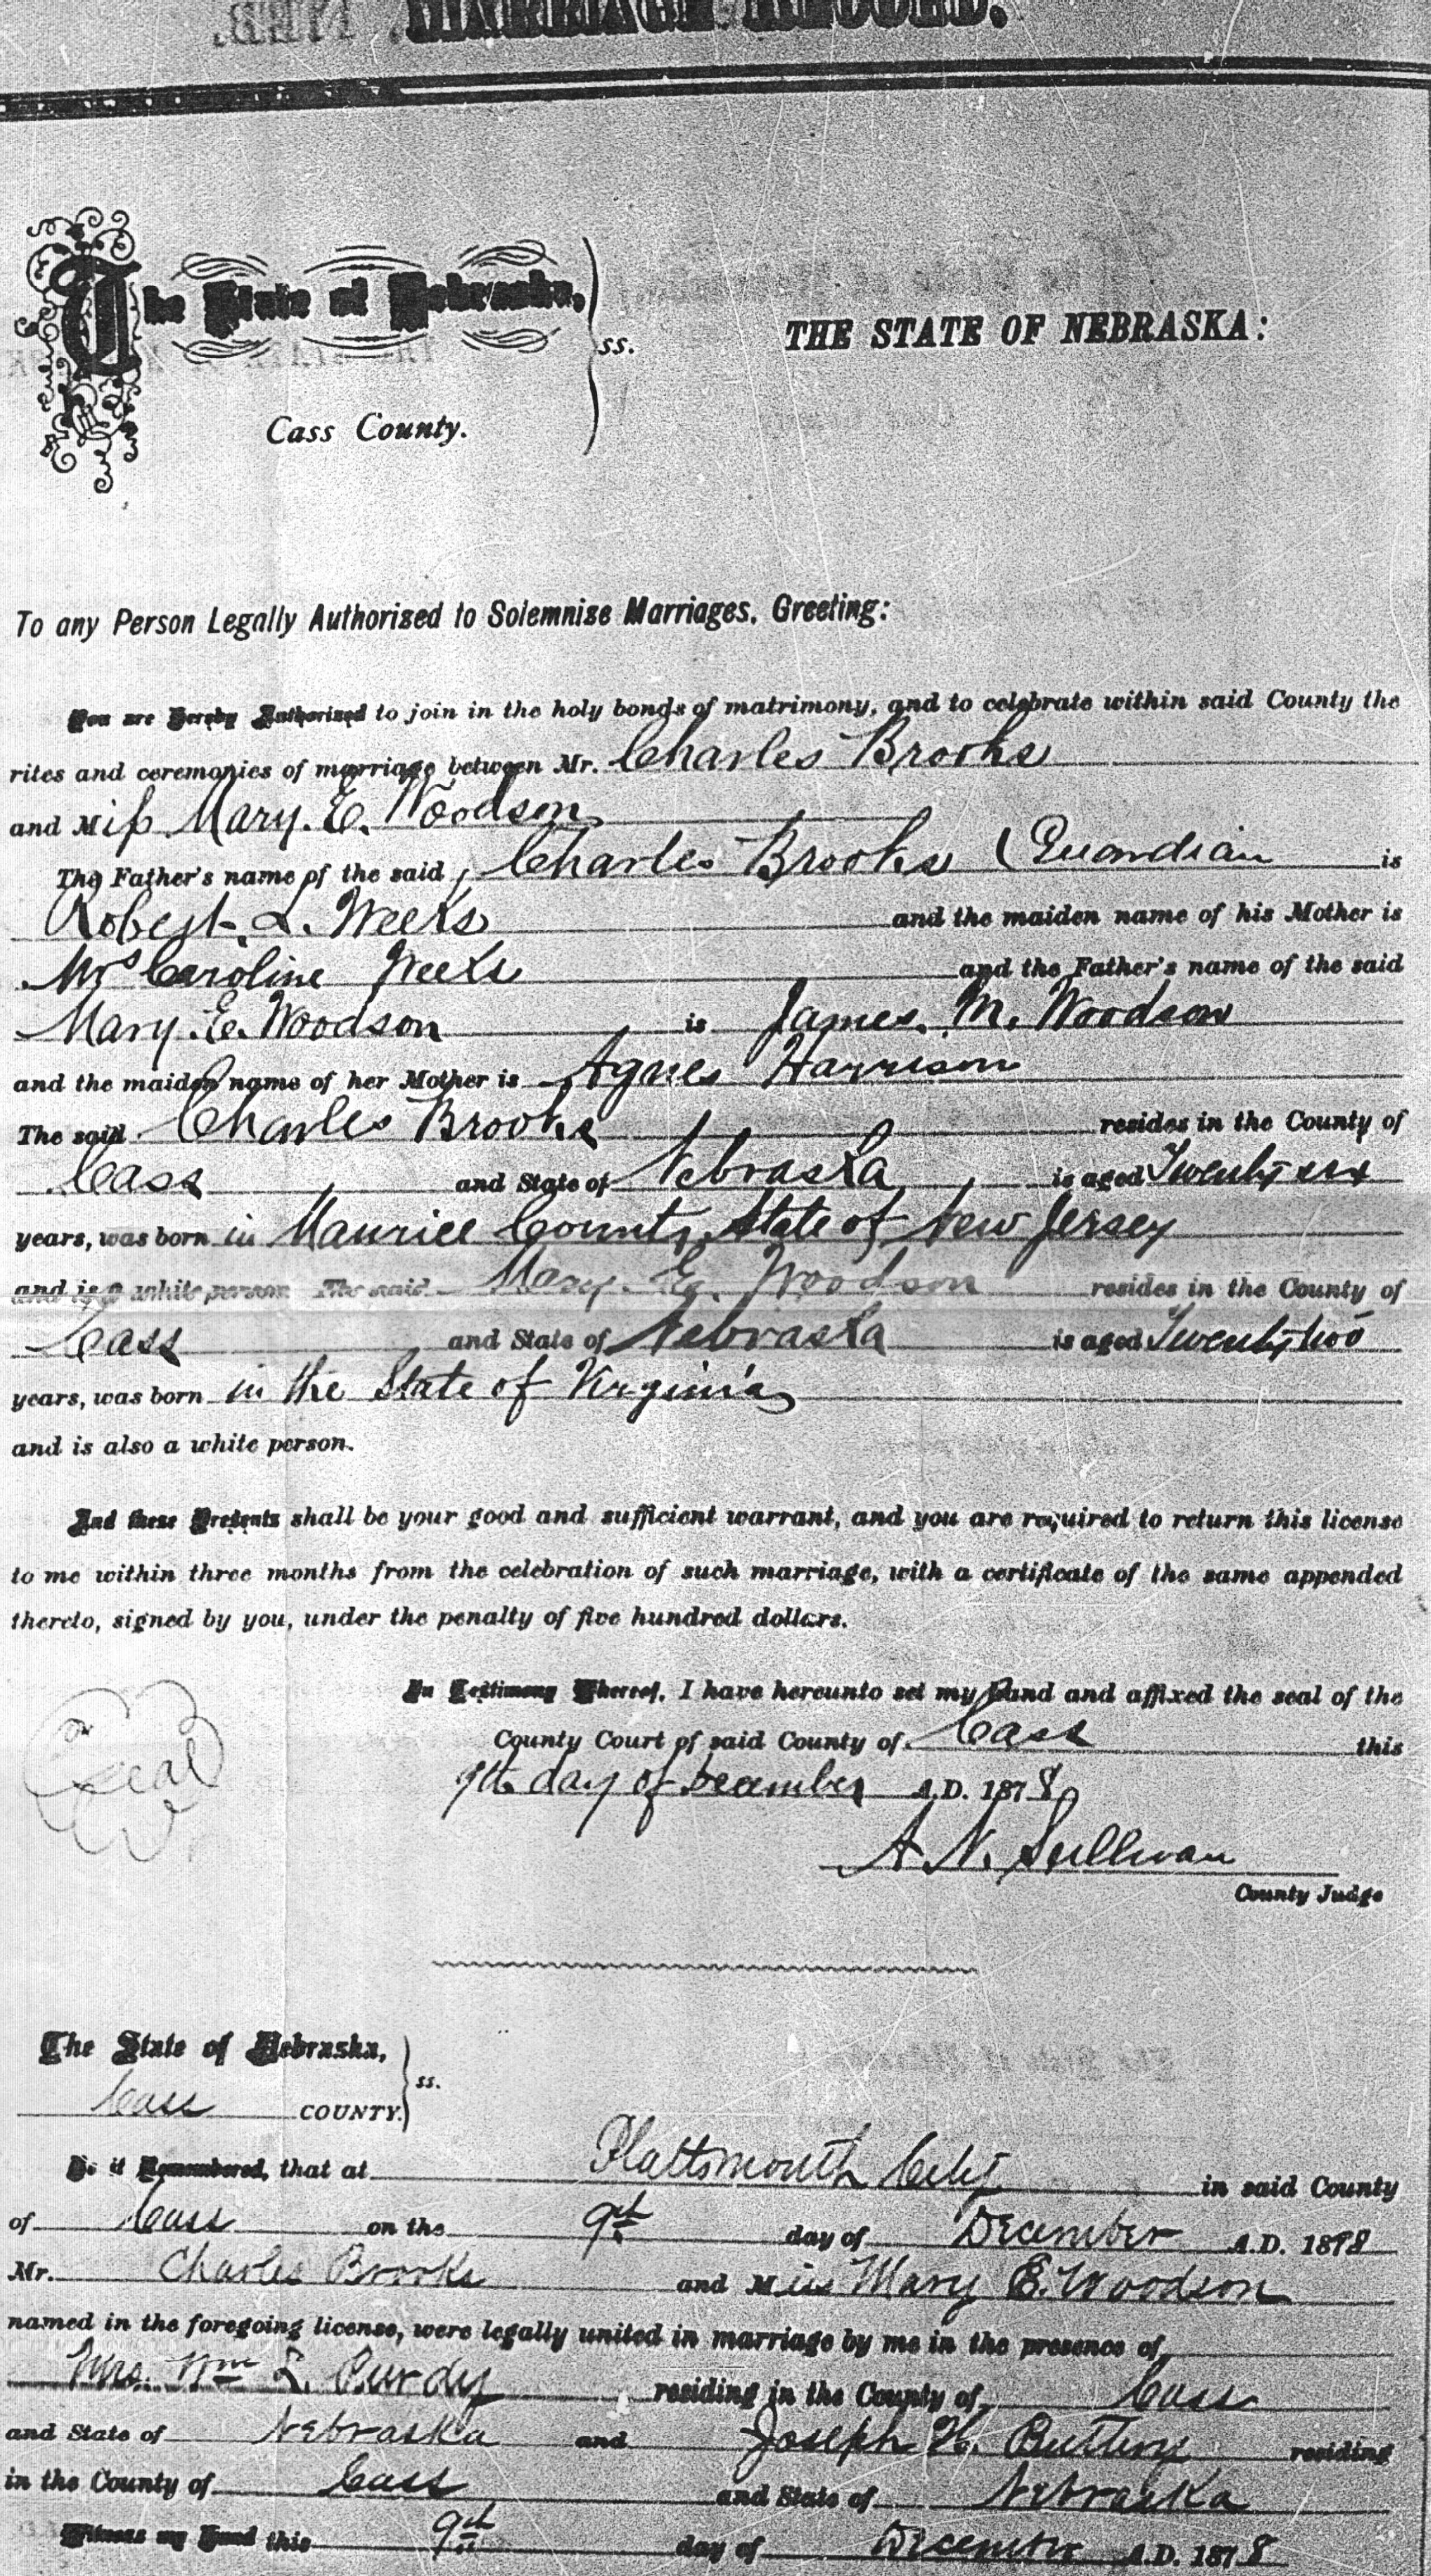 MARRIAGE RECORD.
The State of Nebraska,
ss.
THE STATE OF NEBRASKA:
Cass County.
To any Person Legally Authorized to Solemnize Marriages, Greeting:
You are Hereby Authorized to join in the holy bonds of matrimony, and to celebrate within said County the
rites and ceremonies of marriage between Mr. Charles Brooks
and Miss Mary. E. Woodson
The Father's name of the said Charles Brooks (Guardian is
Robert. L. Weeks and the maiden name of his Mother is
Mrs Caroline Weeks and the Father's name of the said
Mary. E. Woodson is James. M. Woodson
and the maiden name of her Mother is Agnes Harrison
The said Charles Brooks resides in the County of
Cass and State of Nebraska is aged Twenty six
years, was born in Maurice County State of New Jersey
and is a white person The said Mary. E. Woodson resides in the County of
Cass and State of Nebraska is aged Twenty two
years, was born in the State of Virginia
and is also a white person.
And these Presents shall be your good and sufficient warrant, and you are required to return this license
to me within three months from the celebration of such marriage, with a certificate of the same appended
thereto, signed by you, under the penalty of five hundred dollars.
In Testimony Whereof, I have hereunto set my hand and affixed the seal of the
County Court of said County of Cass this
9th day of December A.D. 1878
Seal
A. N. Sullivan
County Judge
The State of Nebraska,
ss.
Cass COUNTY.
Be it Remembered, that at Plattsmouth City in said County
of Cass on the 9th day of December A.D. 1878
Mr. Charles Brooks and Miss Mary E. Woodson
named in the foregoing license, were legally united in marriage by me in the presence of
Mrs. Wm L. Purdy residing in the County of Cass
and State of Nebraska and Joseph H. Buttery residing
in the County of Cass and State of Nebraska
Witness my Hand this 9th day of December A.D. 1878